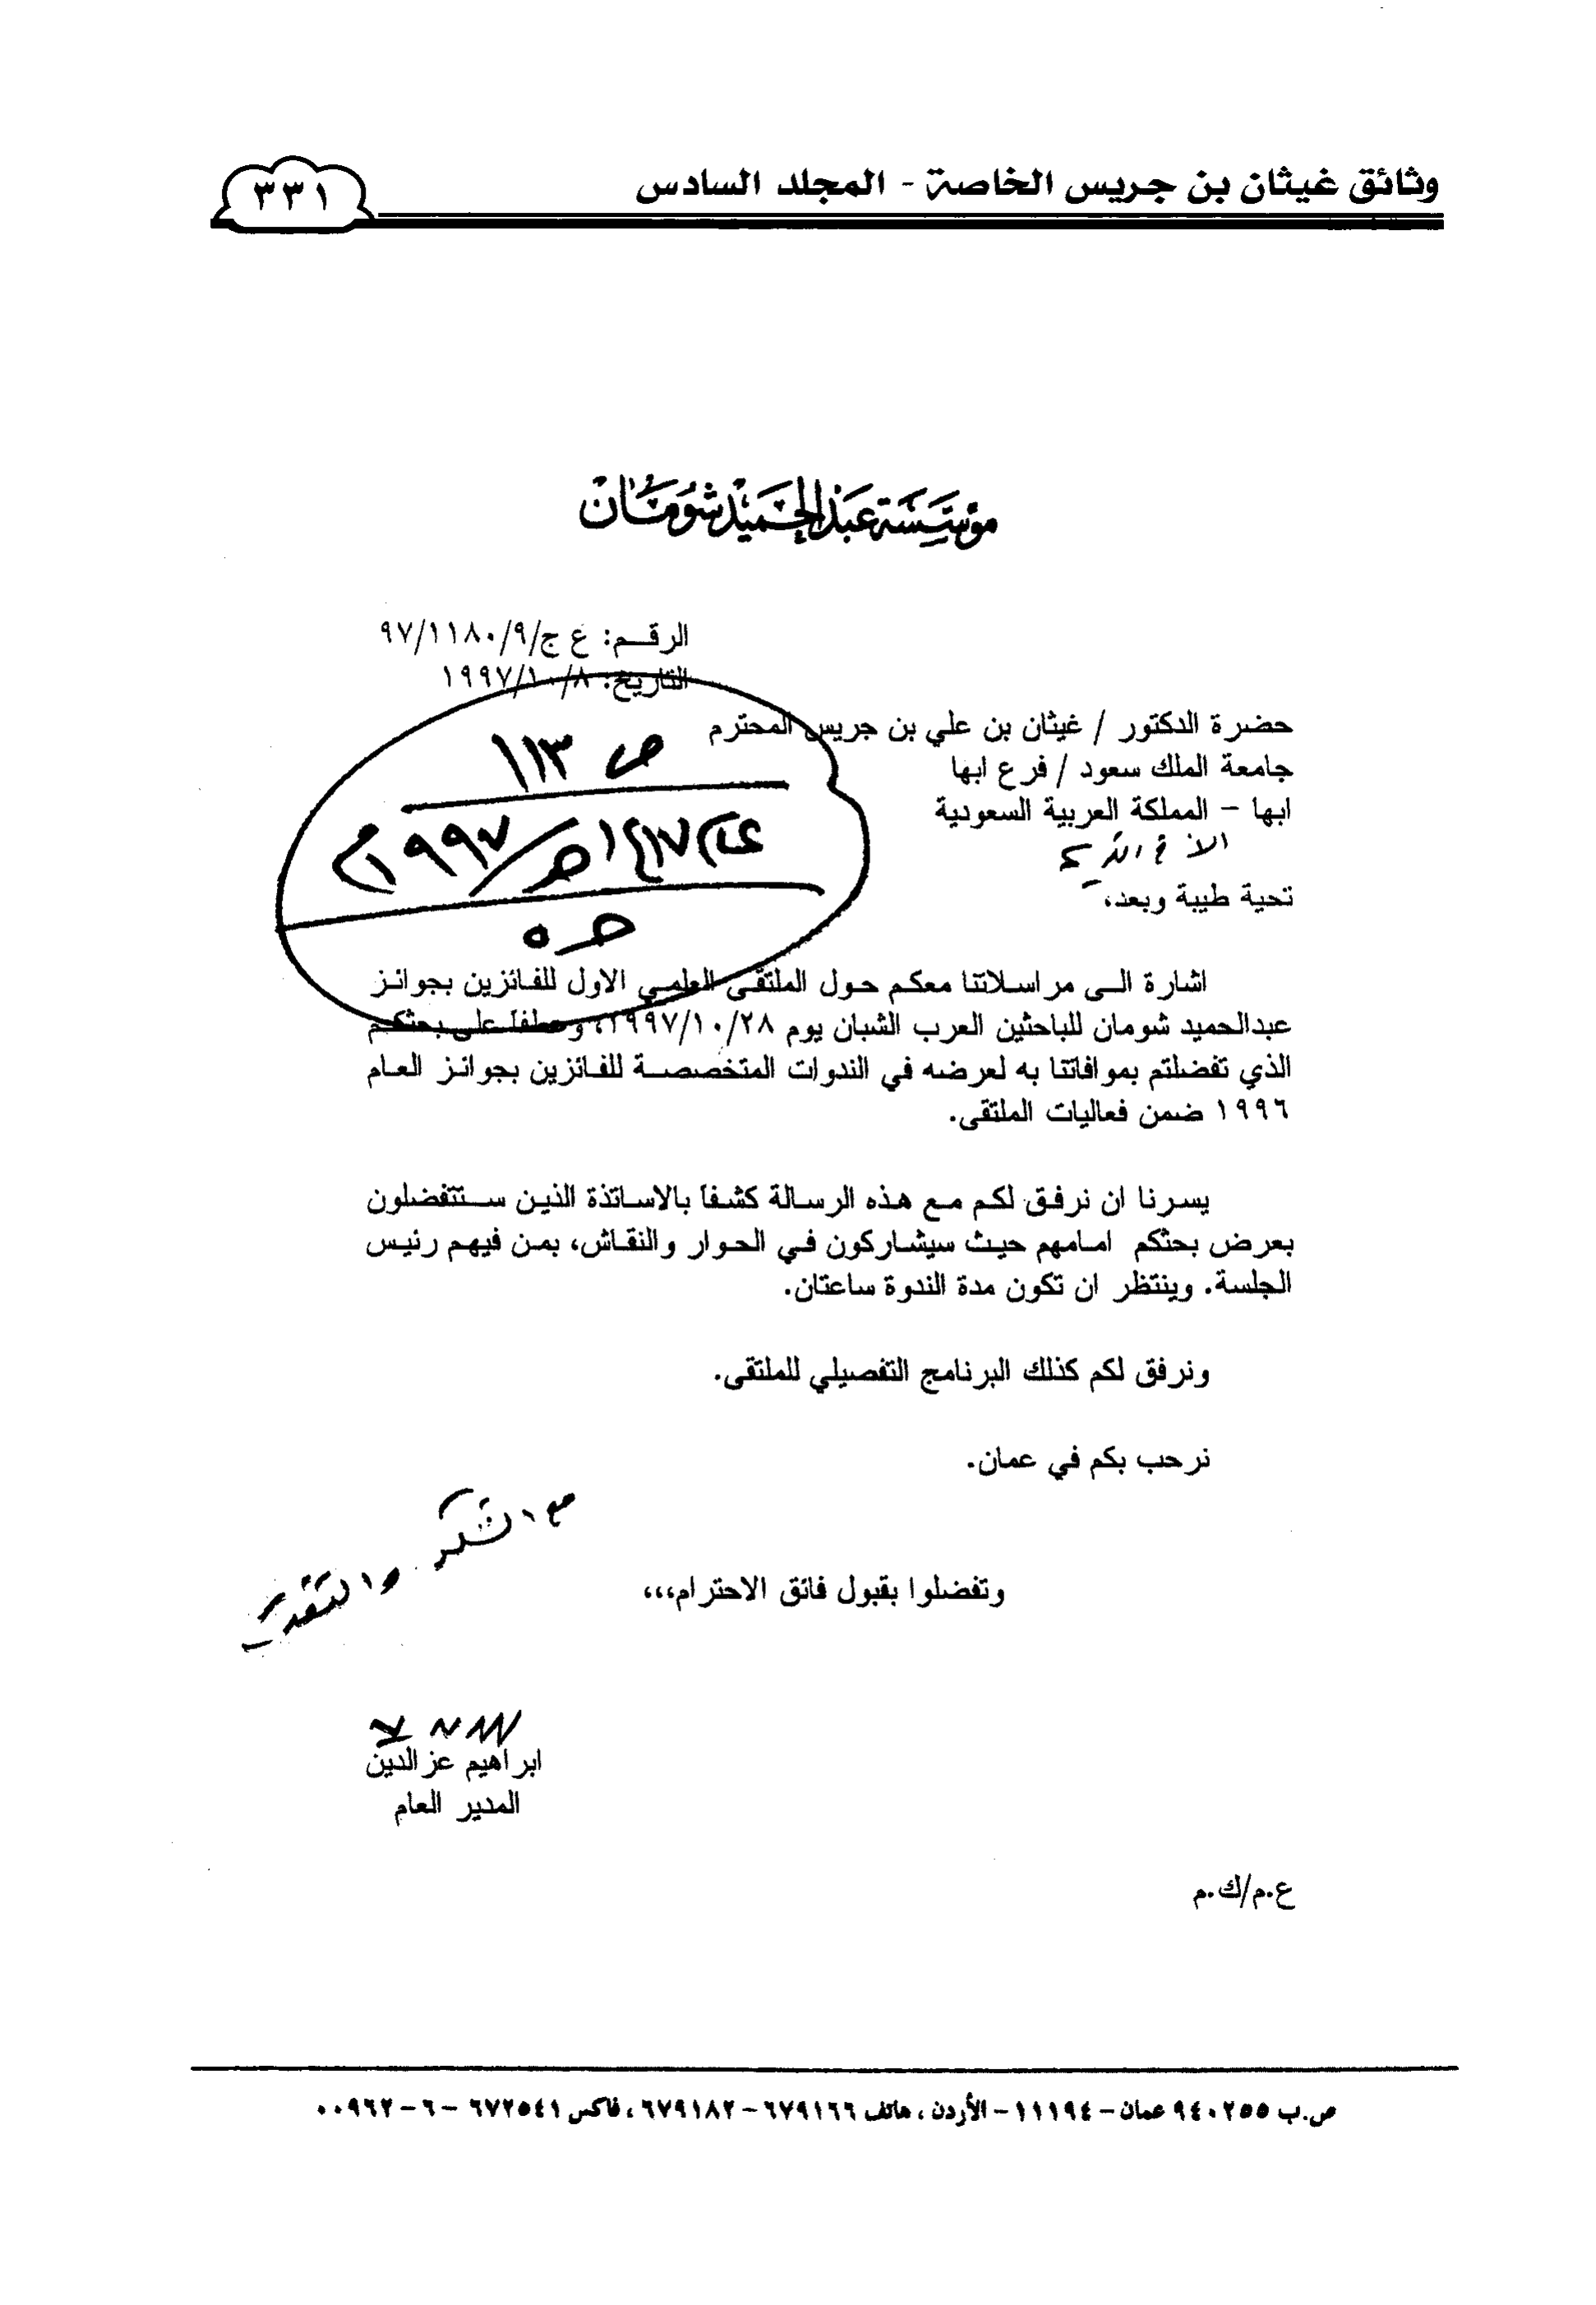 وثائق غيثان بن جريس الخاصة - المجلد السادس
٣٣١
مؤسسة عبدالحميد شومان
الرقم: ع ج/٩/١١٨٠/٩٧
التاريخ: ١٩٩٧/١٠/٨
ص ١١٣
١٤١٧هـ/١٩٩٧م
حضرة الدكتور / غيثان بن علي بن جريس المحترم
جامعة الملك سعود / فرع ابها
ابها - المملكة العربية السعودية
الأخ الكريم
تحية طيبة وبعد،
اشارة الى مراسلاتنا معكم حول الملتقى العلمي الاول للفائزين بجوائز
عبدالحميد شومان للباحثين العرب الشبان يوم ١٩٩٧/١٠/٢٨، وعطفا على بحثكم
الذي تفضلتم بموافاتنا به لعرضه في الندوات المتخصصة للفائزين بجوائز العام
١٩٩٦ ضمن فعاليات الملتقى.
يسرنا ان نرفق لكم مع هذه الرسالة كشفا بالاساتذة الذين ستتفضلون
بعرض بحثكم امامهم حيث سيشاركون في الحوار والنقاش، بمن فيهم رئيس
الجلسة. وينتظر ان تكون مدة الندوة ساعتان.
ونرفق لكم كذلك البرنامج التفصيلي للملتقى.
نرحب بكم في عمان.
مع الشكر والتقدير
وتفضلوا بقبول فائق الاحترام،،،
ابراهيم عزالدين
المدير العام
ع.م/ك.م
ص.ب ٩٤٠٢٥٥ عمان - ١١١٩٤ - الأردن ، هاتف ٦٧٩١٦٦ - ٦٧٩١٨٢ ، فاكس ٦٧٢٥٤١ - ٦ - ٠٠٩٦٢